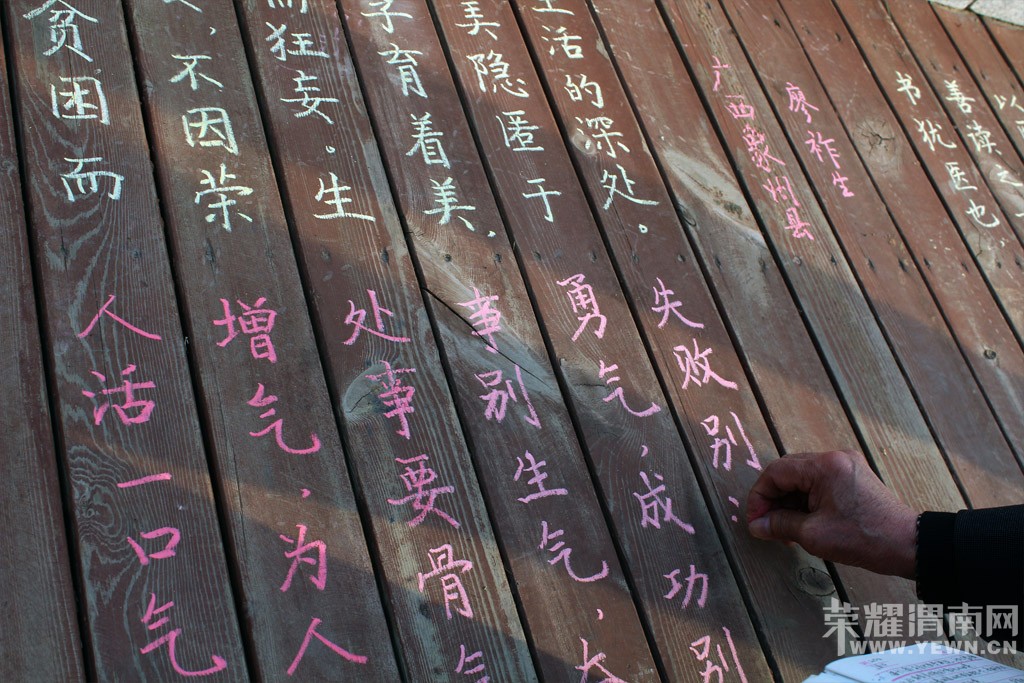 贫困而
，不因荣
而狂妄。生
孕育着美，
美隐匿于
生活的深处。
人活一口气
增气，为人
处事要骨气
事别生气，大
勇气，成功别
失败别
广西象州县
廖祚生
书犹医也
善读之
以
荣耀渭南网
WWW.YEWN.CN